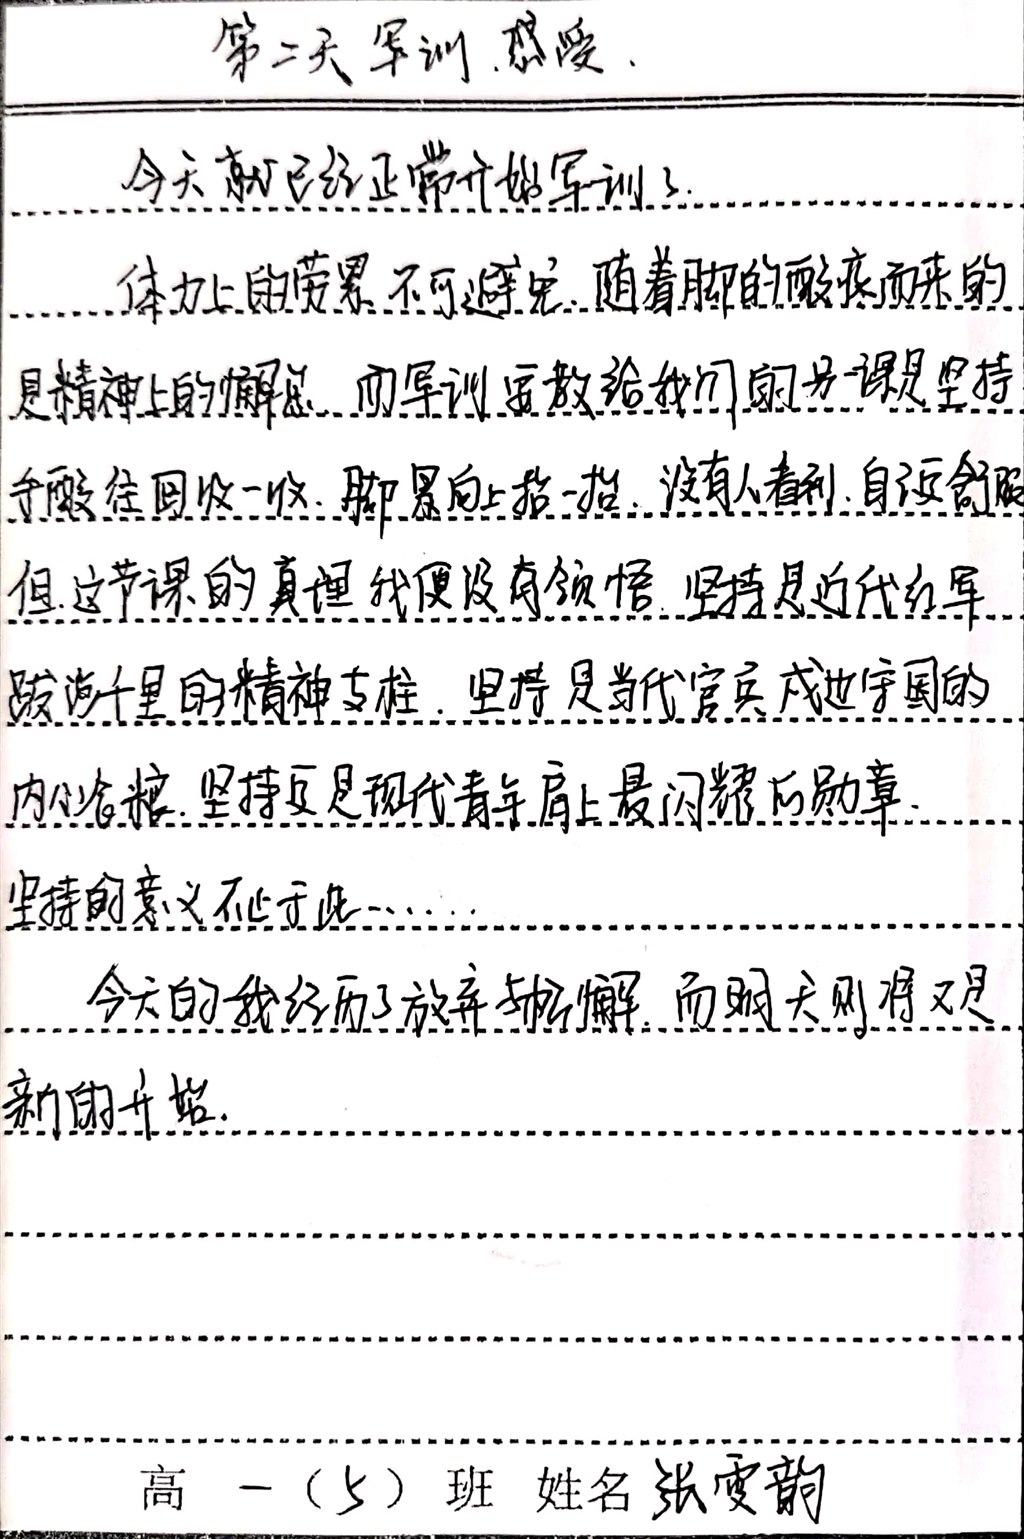 第二天军训.感受.
今天就已经正常开始军训了.
体力上的劳累不可避免.随着脚的酸疼而来的
是精神上的懈怠.而军训要教给我们的另一课是坚持
手酸往回收一收.脚累向上抬一抬.没有人看到.自己更舒服
但.这节课的真理我便没有领悟.坚持是近代红军
跋涉千里的精神支柱.坚持是当代官兵戍边守国的
内心食粮.坚持更是现代青年肩上最闪耀的勋章.
坚持的意义不止于此......
今天的我经历了放弃与松懈.而明天则将又是
新的开始.
高一(5)班 姓名 张雯韵